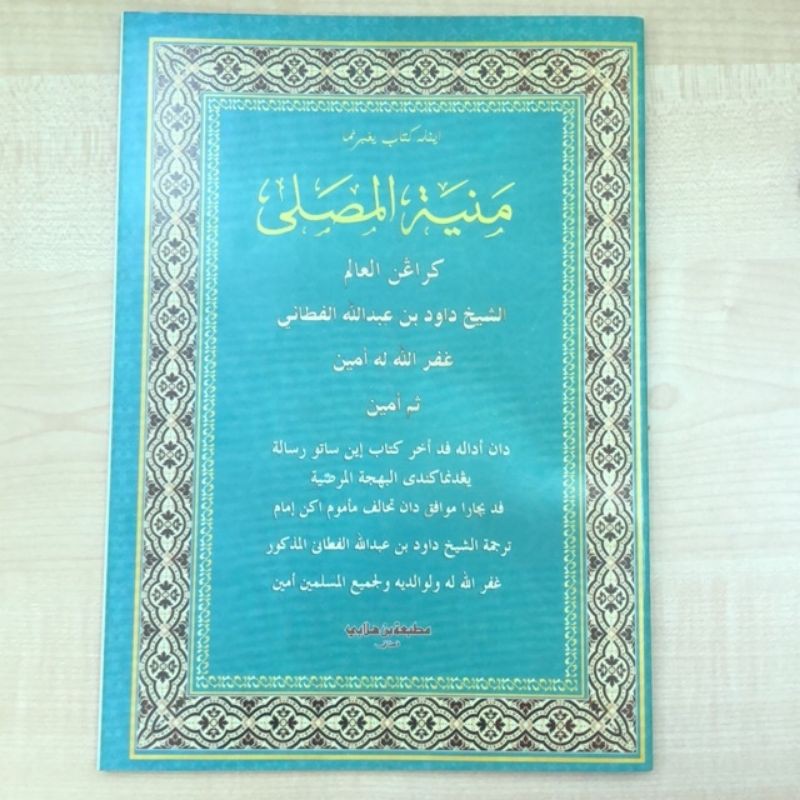 اينله كتاب يغبرنما
منية المصلى
كراڠن العالم
الشيخ داود بن عبدالله الفطاني
غفر الله له أمين
ثم أمين
دان أداله فد أخر كتاب إين ساتو رسالة
يڠدنماكندى البهجة المرضية
فد بچارا موافق دان تخالف مأموم اكن إمام
ترجمة الشيخ داود بن عبدالله الفطاني المذكور
غفر الله له ولوالديه ولجميع المسلمين أمين
مطبعة بن هلابي